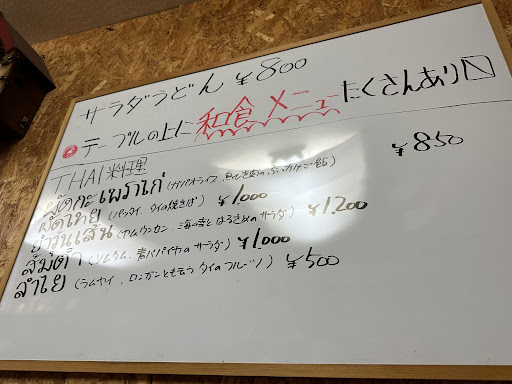 サラダうどん ¥800
◎テーブルの上に和食メニューたくさんあり〼
THAI 料理
ผัดกะเพราไก่ (ガパオライス、鶏ひき肉のぶっかけご飯) ¥850
ผัดไทย (パッタイ、タイの焼きそば) ¥1,000
ยำวุ้นเส้น (ヤムウンセン、海の幸とはるさめのサラダ) ¥1,200
ส้มตำ (ソムタム、青パパイヤのサラダ) ¥1,000
ลำไย (ラムヤイ、ロンガンとも言うタイのフルーツ) ¥500